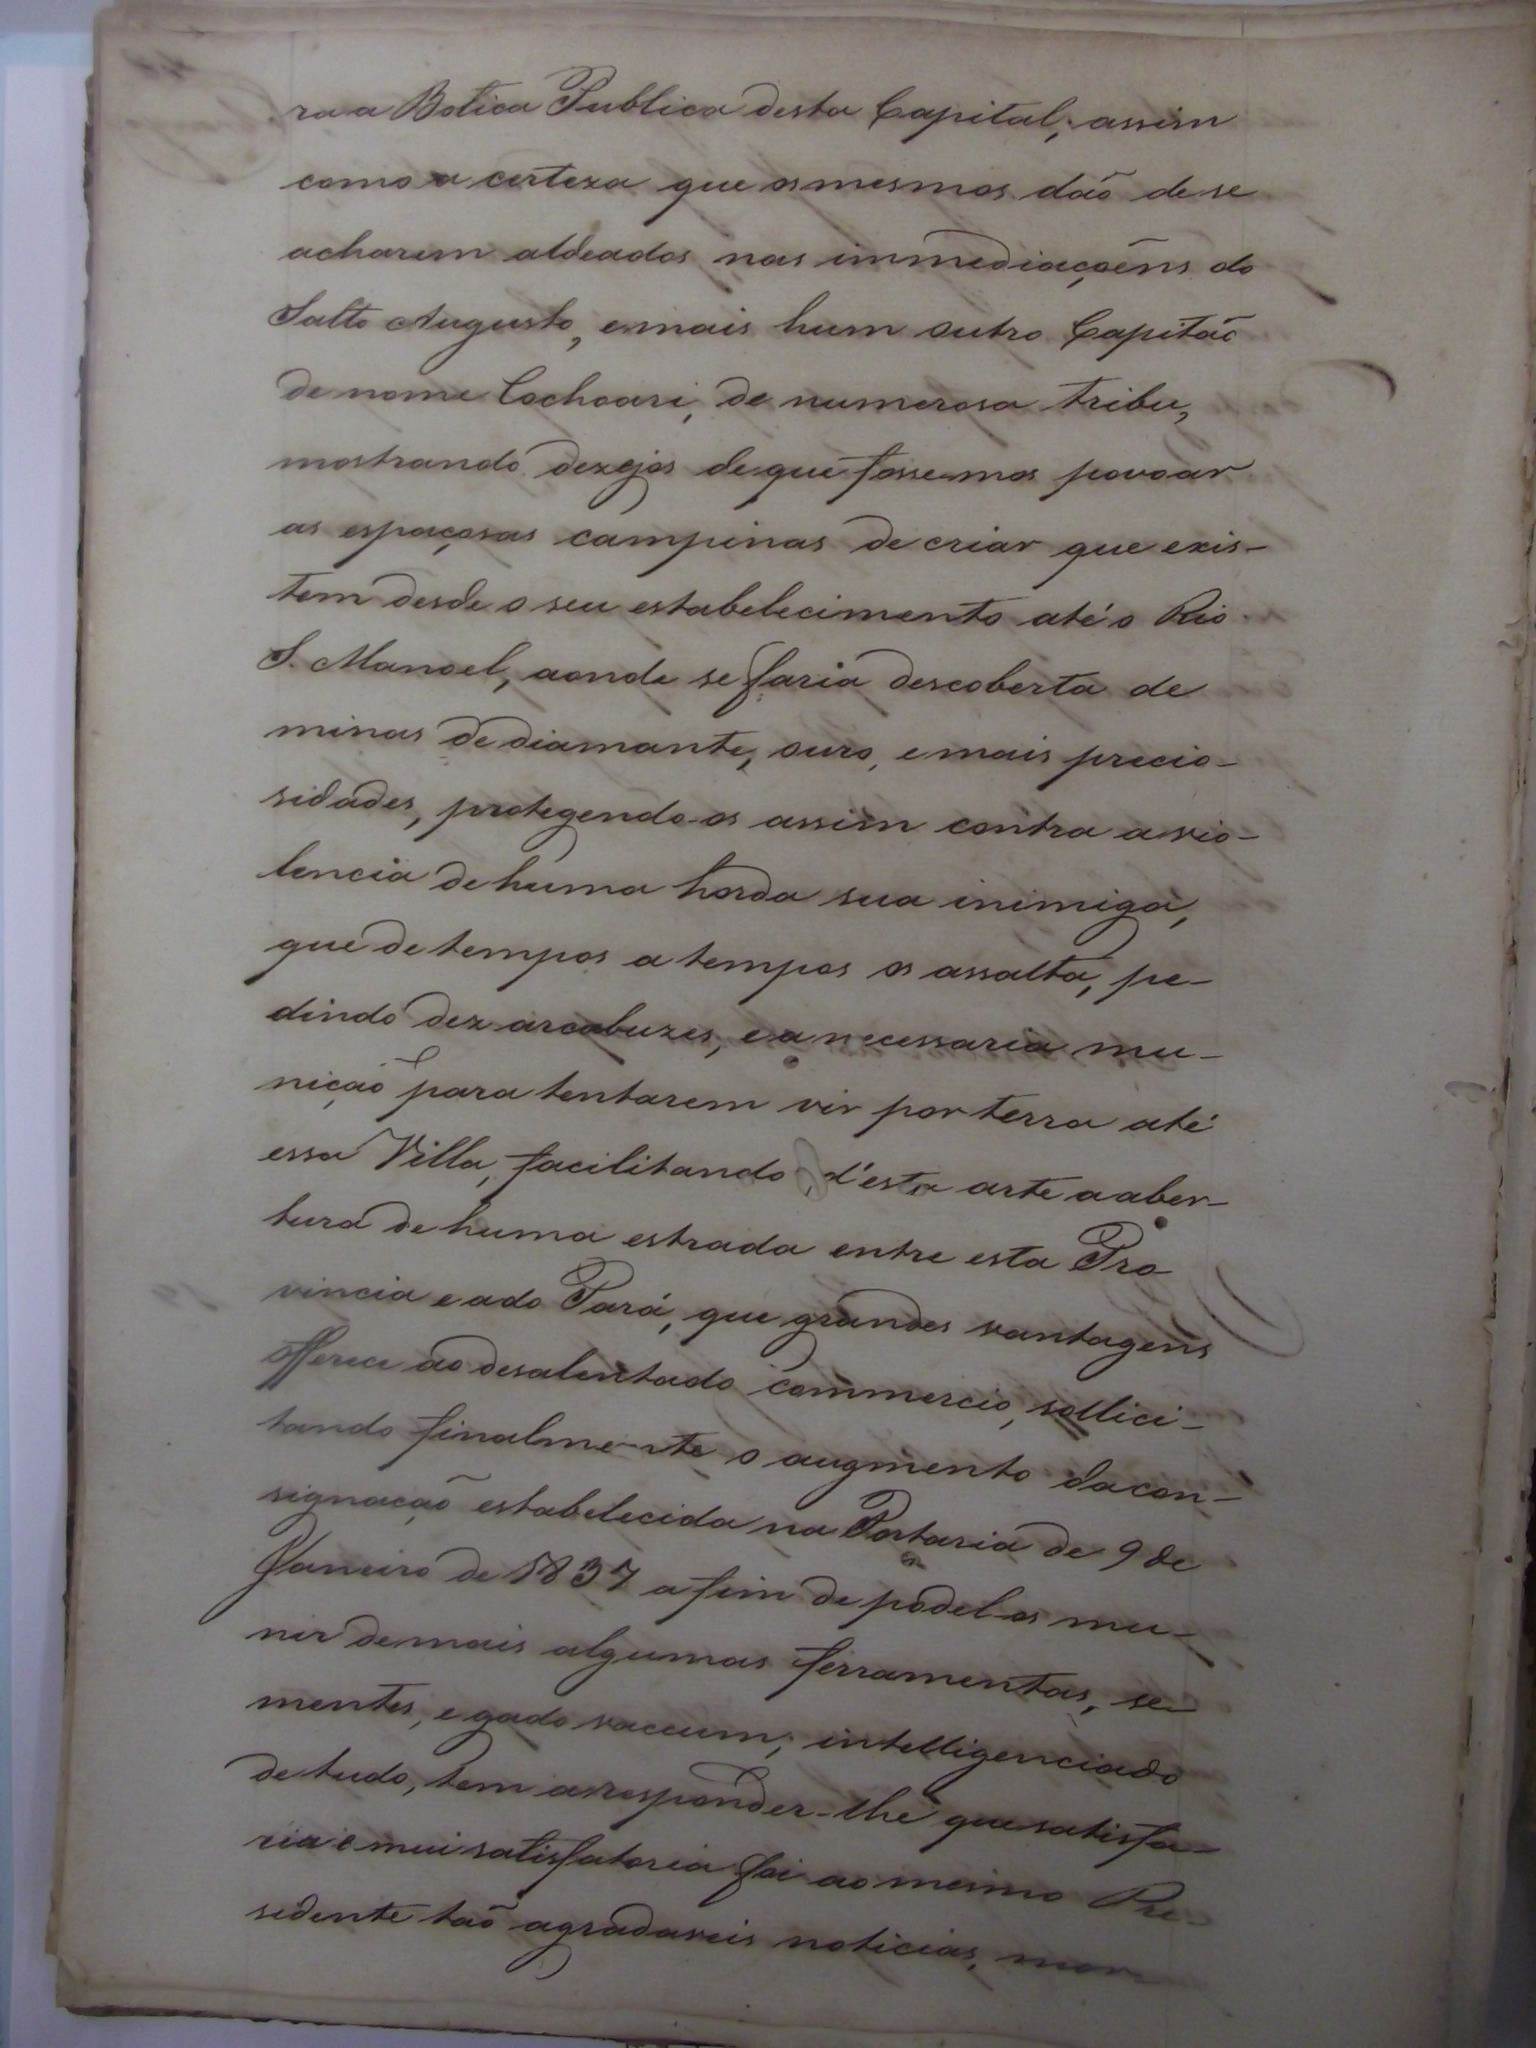 ra a Botica Publica desta Capital; assim
como a certeza que os mesmos dão de se
acharem aldeados nas immediaçoẽns do
Salto Augusto, e mais hum outro Capitão
de nome Cochoari, de numerosa tribu,
mostrando dezejos de que fossemos povoar
as espaçosas campinas de criar que exis-
tem desde o seu estabelecimento até o Rio
S. Manoel, aonde se faria descoberta de
minas de diamante, ouro, e mais precio-
sidades, protegendo-os assim contra a vio-
lencia de huma horda sua inimiga,
que de tempos a tempos os assalta, pe-
dindo dez arcabuzes, e a necessaria mu-
nição para tentarem vir por terra até
essa Villa, facilitando d'esta arte a aber-
tura de huma estrada entre esta Pro
vincia e a do Pará, que grandes vantagens
offerece ao desalentado commercio, sollici-
tando finalmente o augmento da con-
signação estabelecida na Portaria de 9 de
Janeiro de 1837 a fim de podel-os mu-
nir de mais algumas ferramentas, se-
mentes, e gado vaccum; intelligenciado
de tudo, tem a responder-lhe que satisfa-
ria e mui satisfatoria foi ao mesmo Pre-
sidente taõ agradaveis noticias,